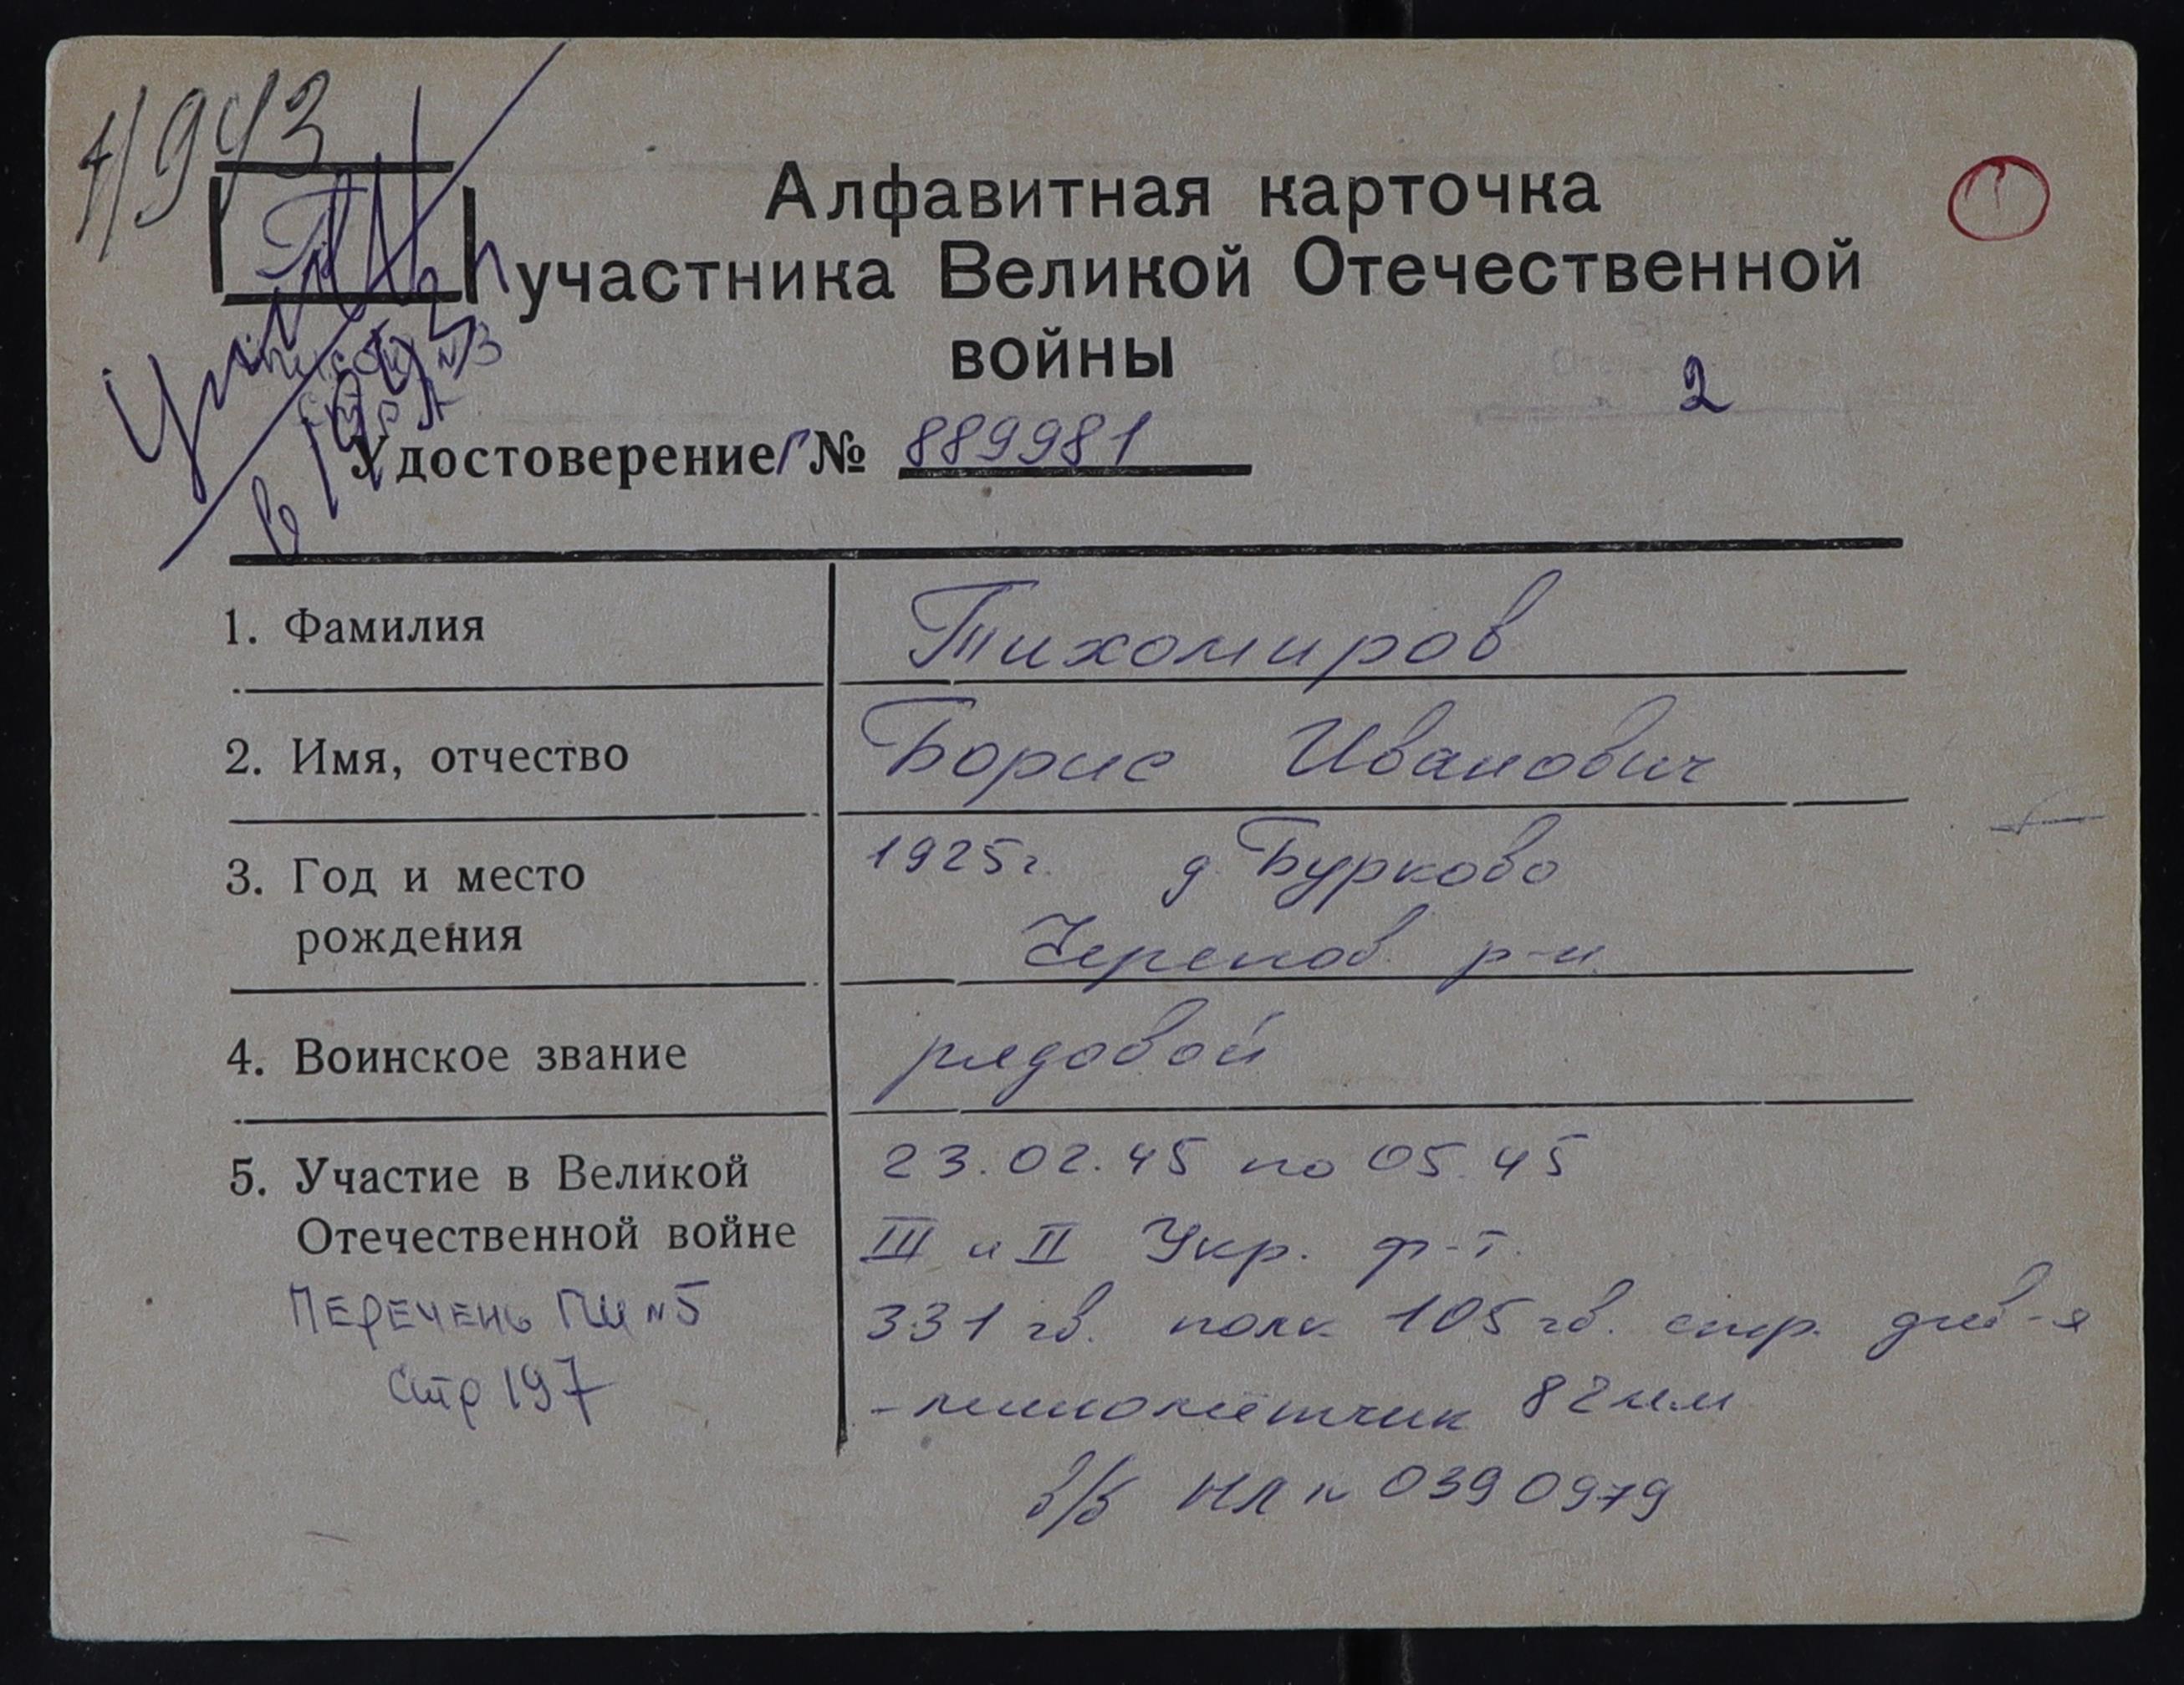 Алфавитная карточка
участника Великой Отечественной
войны
2
Удостоверение Г № 889981
1. Фамилия Тихомиров
2. Имя, отчество Борис Иванович
3. Год и место рождения 1925г. д. Бурково
Черепов. р-н.
4. Воинское звание рядовой
5. Участие в Великой Отечественной войне 23.02.45 по 05.45
III и II Укр. ф-т.
331 гв. полк 105 гв. стр. див-я
- миномётчик 82 мм
в/б НЛ № 0390979
ПЕРЕЧЕНЬ ПИ №5
стр 197